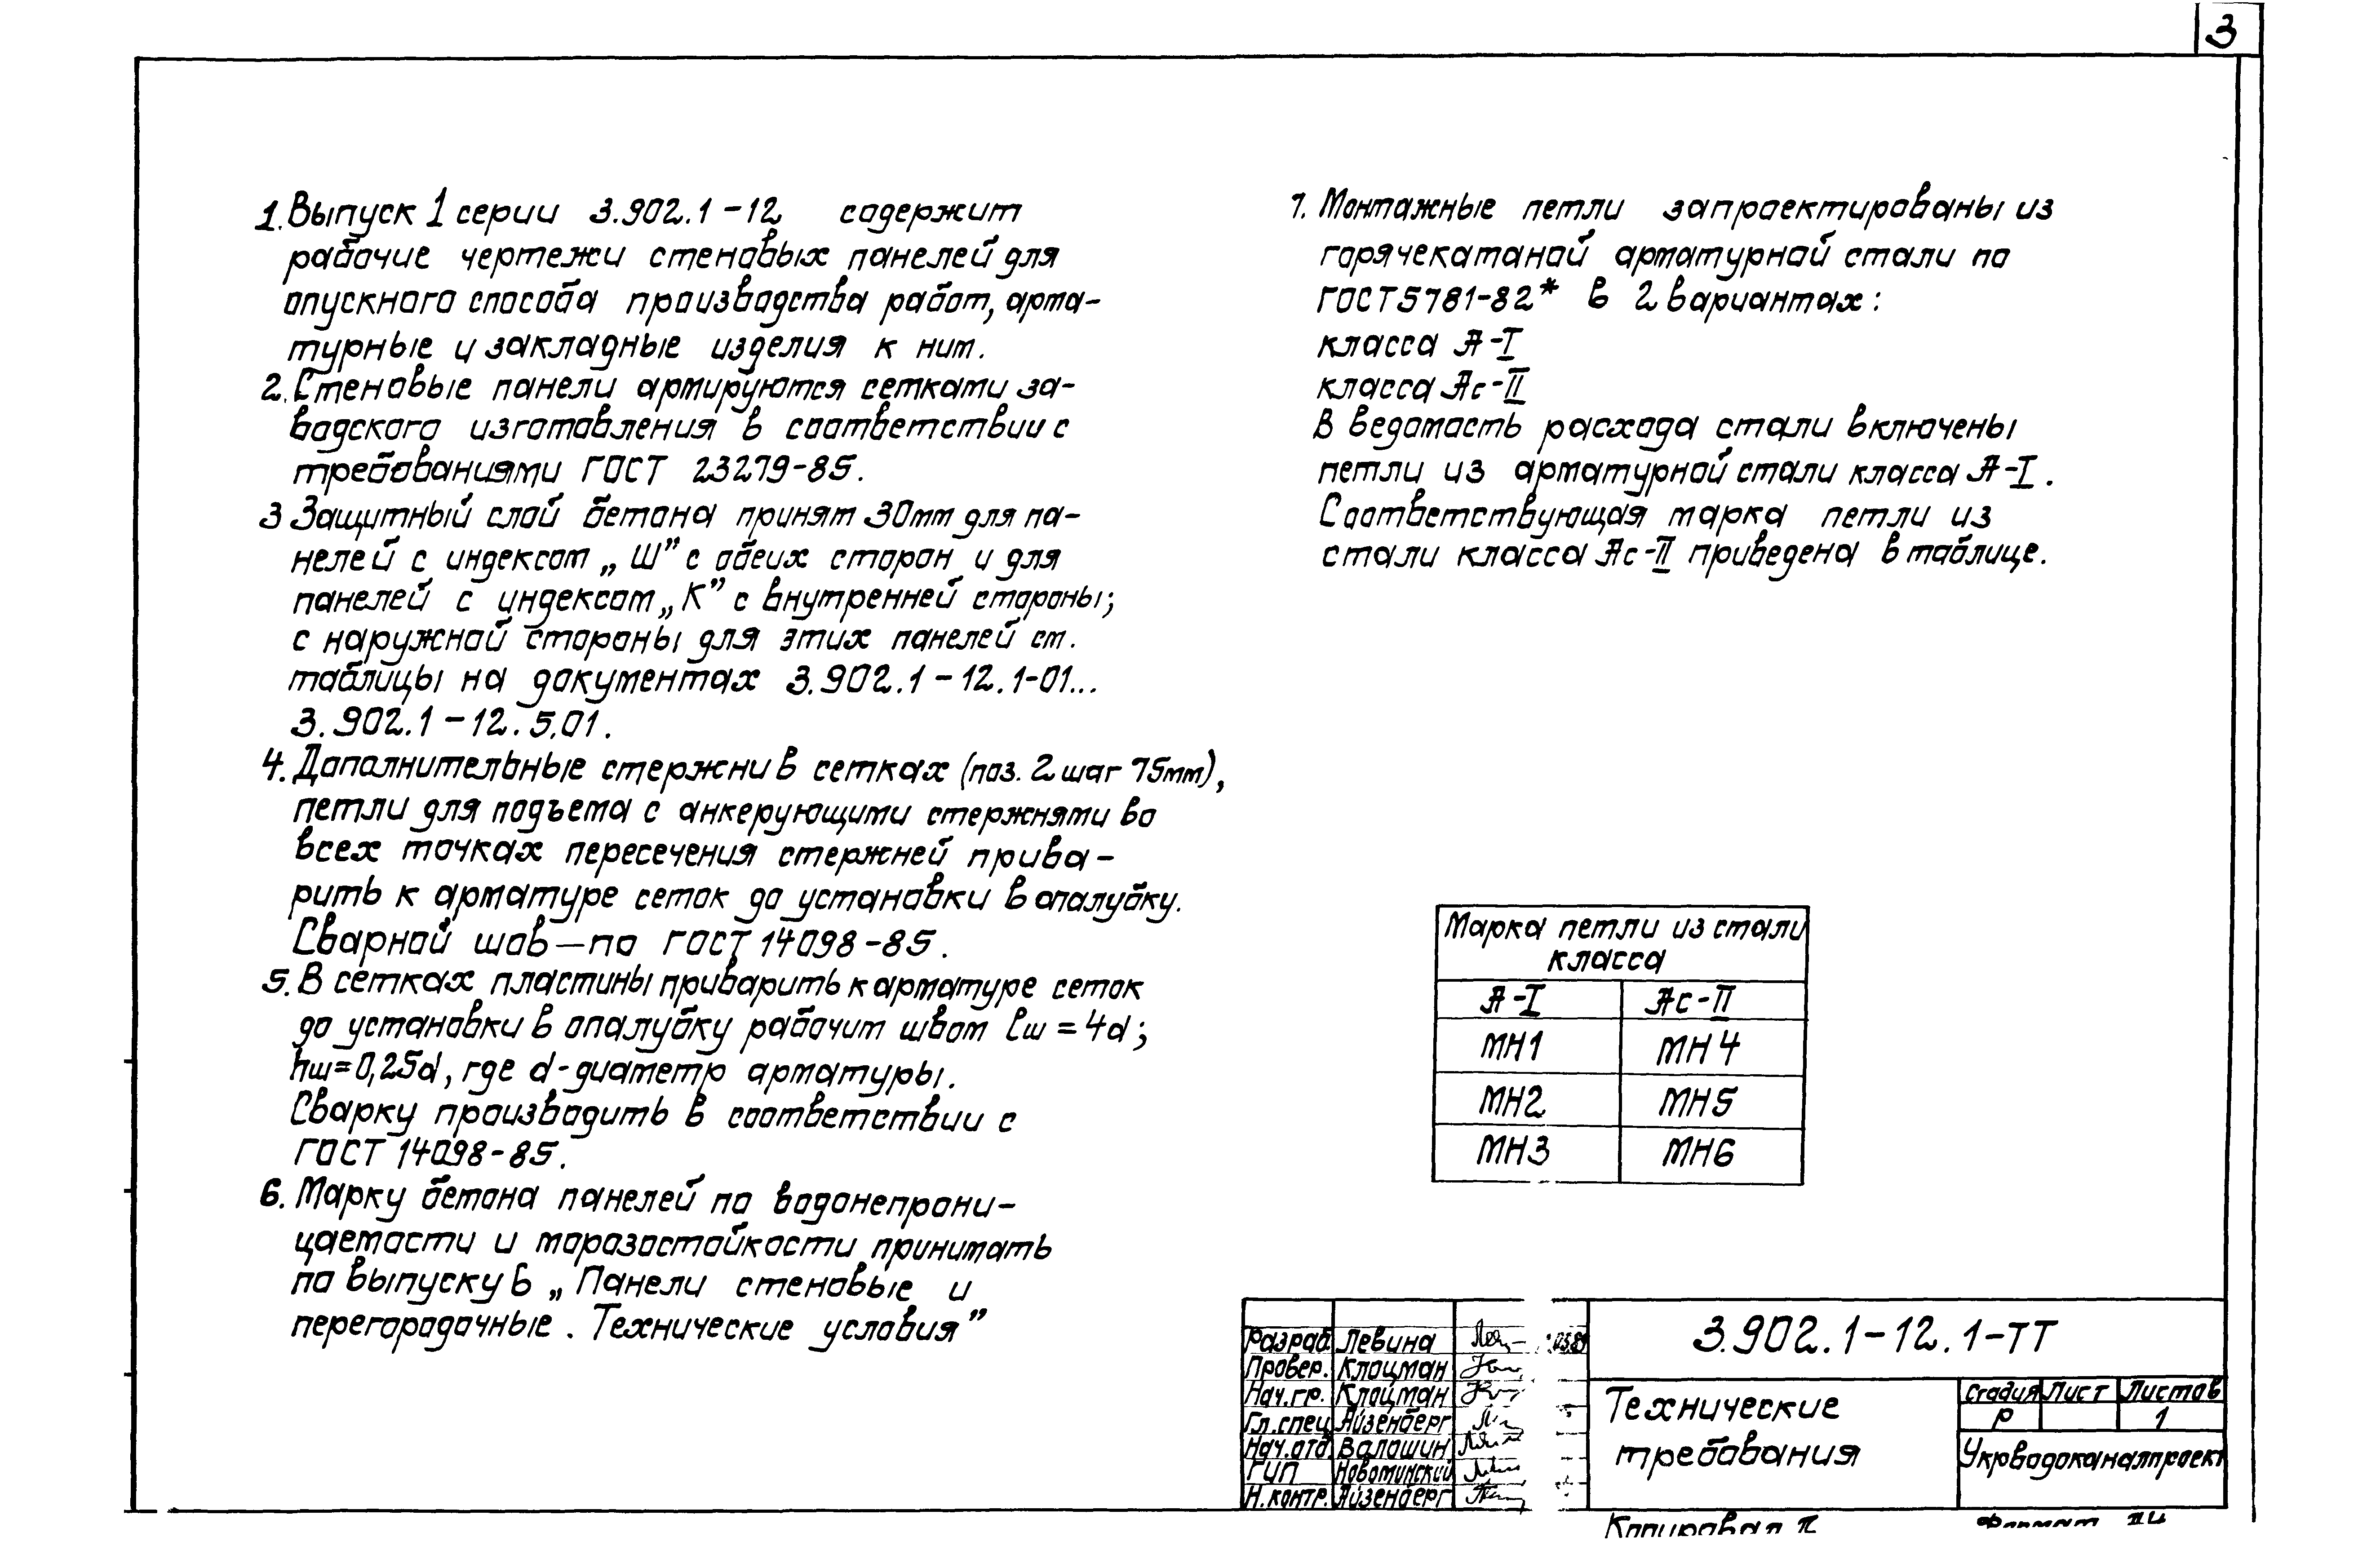 3
1. Выпуск 1 серии 3.902.1-12 содержит
рабочие чертежи стеновых панелей для
опускного способа производства работ, арма-
турные и закладные изделия к ним.
2. Стеновые панели армируются сетками за-
водского изготовления в соответствии с
требованиями ГОСТ 23279-85.
3 Защитный слой бетона принят 30мм для па-
нелей с индексом „Ш” с обеих сторон и для
панелей с индексом „К” с внутренней стороны;
с наружной стороны для этих панелей см.
таблицы на документах 3.902.1-12.1-01...
3.902.1-12.5.01.
4. Дополнительные стержни в сетках (поз. 2 шаг 75мм),
петли для подъема с анкерующими стержнями во
всех точках пересечения стержней прива-
рить к арматуре сеток до установки в опалубку.
Сварной шов—по ГОСТ 14098-85.
5. В сетках пластины приварить к арматуре сеток
до установки в опалубку рабочим швом lш = 4d;
hш=0,25d, где d-диаметр арматуры.
Сварку производить в соответствии с
ГОСТ 14098-85.
6. Марку бетона панелей по водонепрони-
цаемости и морозостойкости принимать
по выпуску 6 „Панели стеновые и
перегородочные. Технические условия”
7. Монтажные петли запроектированы из
горячекатаной арматурной стали по
ГОСТ 5781-82* в 2 вариантах:
класса А-I
класса Ас-II
В ведомость расхода стали включены
петли из арматурной стали класса А-I.
Соответствующая марка петли из
стали класса Ас-II приведена в таблице.
Марка петли из стали
класса
А-I Ас-II
МН1 МН4
МН2 МН5
МН3 МН6
Разраб. Левина
Провер. Клоцман
Нач.гр. Клоцман
Гл.спец Айзенберг
Нач.отд. Валошин
ГИП Новотинский
Н.контр. Айзенберг
3.902.1-12.1-ТТ
Технические
требования
Стадия Лист Листов
Р 1
Укрводоканалпроект
Копировал
Формат А4